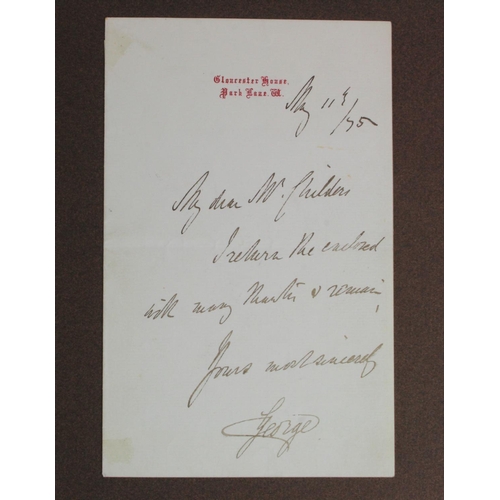 Gloucester House,
Park Lane. W.
May 11th
/75
My dear Mr. Childers
I return the enclosed
with many thanks & remain,
Yours most sincerely
George